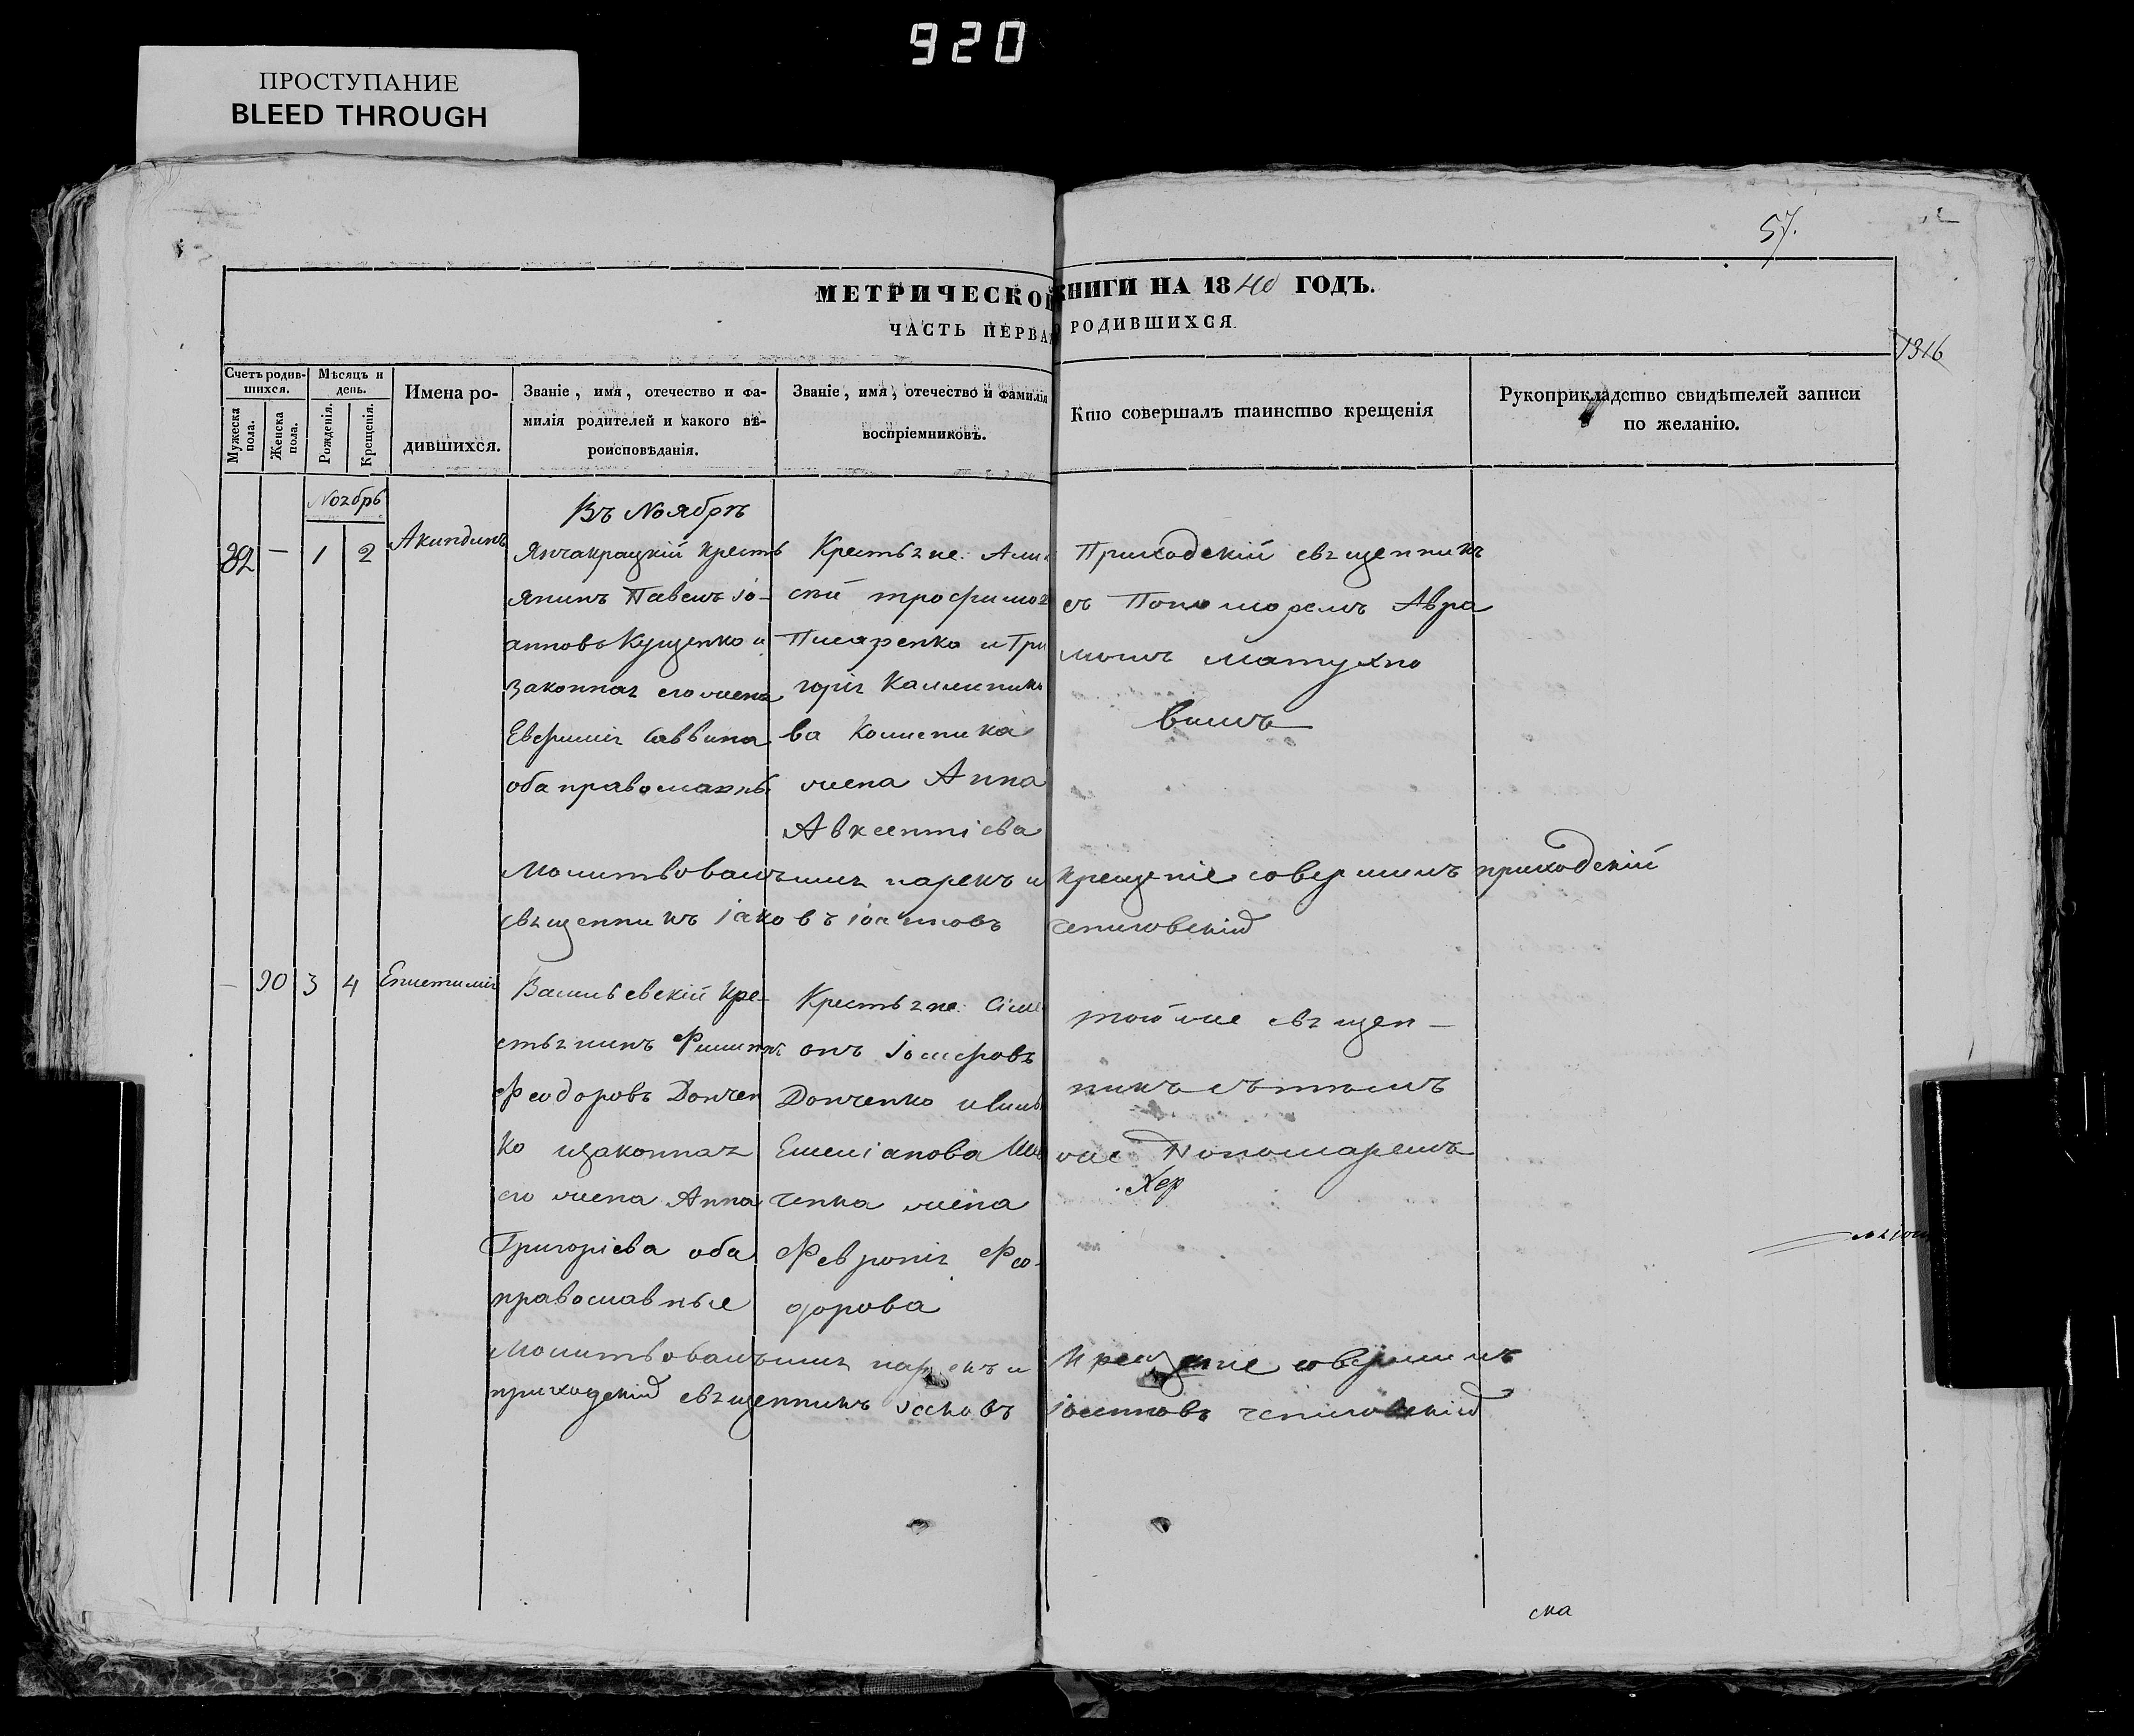 920
ПРОСТУПАНИЕ
BLEED THROUGH
57.
МЕТРИЧЕСКОЙ КНИГИ НА 1840 ГОДЪ.
ЧАСТЬ ПЕРВАЯ О РОДИВШИХСЯ.
1316
Счетъ родив-
шихся.
Мужеска пола.
Женска пола.
Мѣсяцъ и
день.
Рожденія.
Крещенія.
Имена ро-
дившихся.
Званіе, имя, отечество и фа-
милія родителей и какого вѣ-
роисповѣданія.
Званіе, имя, отечество и фамилія
воспріемниковъ.
Кто совершалъ таинство крещенія
Рукоприкладство свидѣтелей записи
по желанію.
Ноябрь
Въ Ноябрѣ
— 1 2 Акиндинъ
Янчакрацкій кресть
янинъ Павелъ Іо-
анновъ Кущенко и
законная его жена
Евфимія Саввина
оба православны
Крестьяне: Але
сѣй Трофимов
Писаренко и Гри
горія Каллиник
ва Колисника
жена Анна
Авксентіева
Приходскій священникъ
съ Пономоремъ Авра
момъ Матухно
вымъ
Молитвовалъ имя нарекъ и крещеніе совершилъ приходскій
священникъ Іаковъ Іоанновъ
— 90 3 4 Епистимія
Васильевскій кре-
стьянинъ Филиппъ
Феодоровъ Дончен
ко и законная
его жена Анна
Григоріева оба
православные
Крестьяне: Симе
онъ Іосифовъ
Донченко и
Емеліанова Шев
ченка жена
Февронія Фео-
дорова
тойже священ-
никъ съ тѣмъ
же Пономаремъ
Хер
Молитвовалъ имя нарекъ и крещеніе совершилъ
приходскій священникъ Іаковъ Іоанновъ
ска